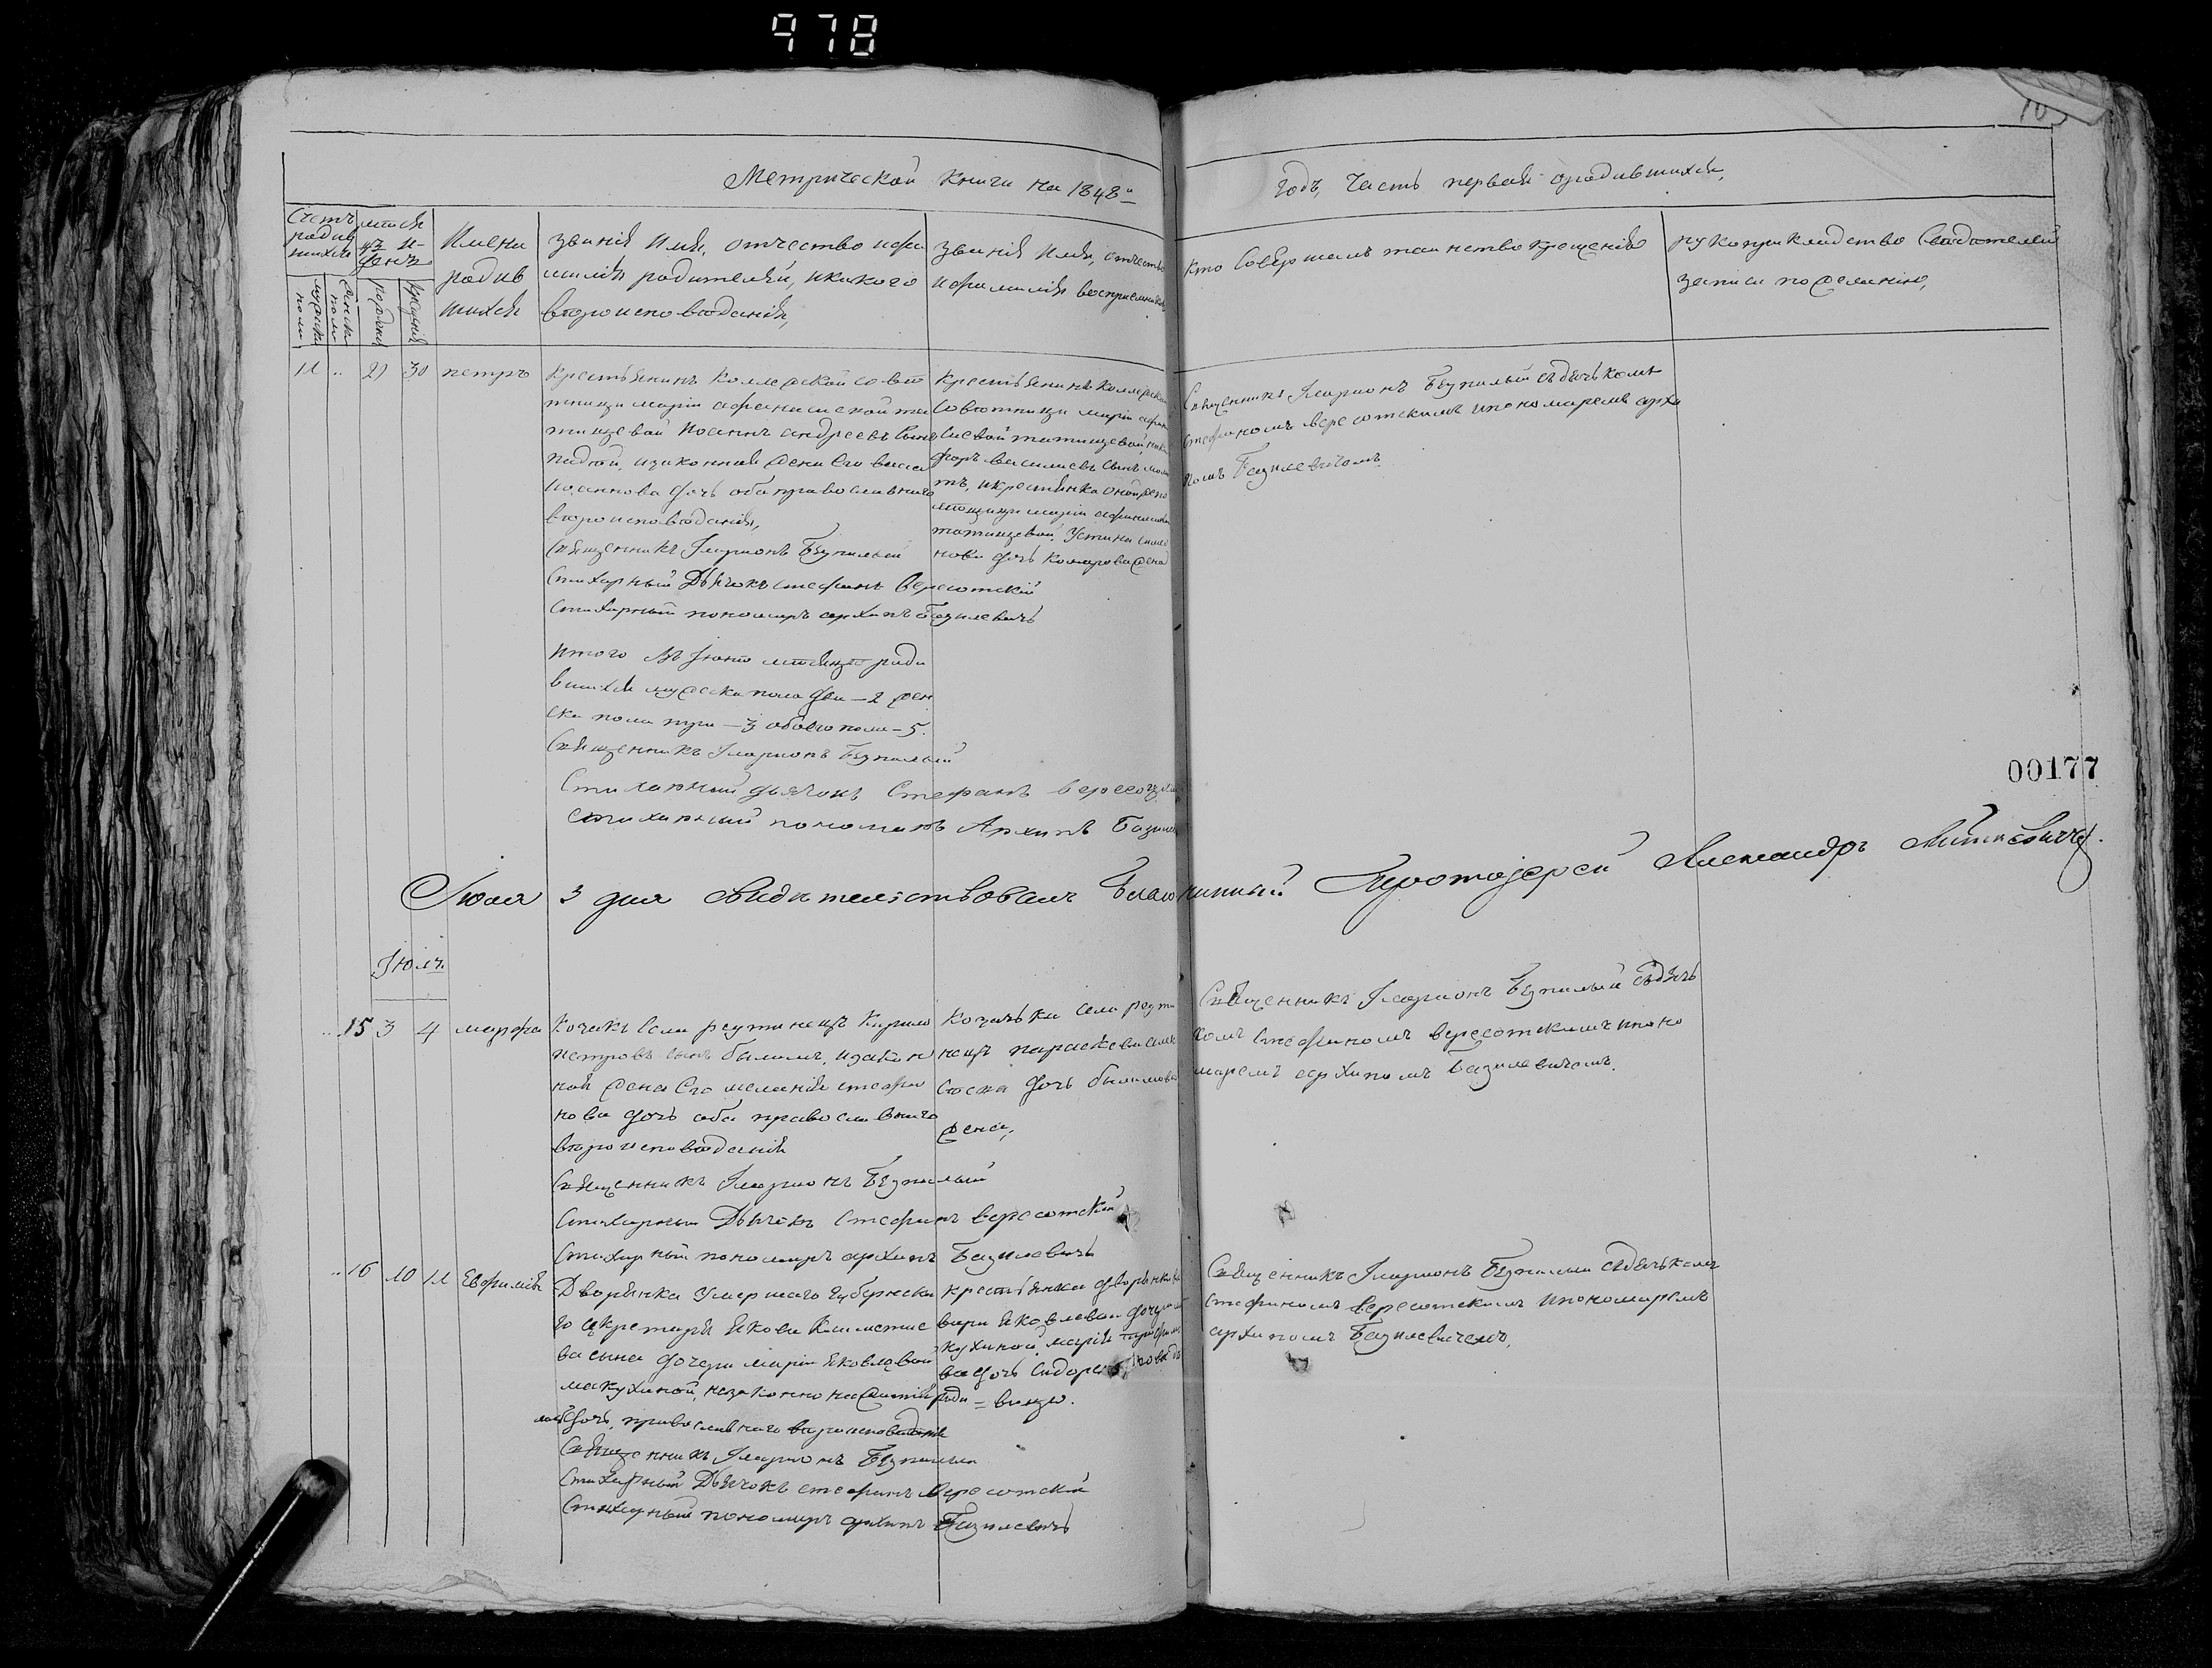 978
10
Метрической книги на 1848й
годъ, часть первая ородившихся,
Счетъ родив шихся
мѣся цъ и день
мужска пола
женска пола
рожденія
крещенія
Имена
родив
шихся
званія имя, отчество ифа
милія родителей, икакого
вѣроисповѣданія,
званія имя, отчество
ифамилія воспріемниковъ
кто совершалъ таинство крещенія
рукоприкладство свидѣтелей
записи пожеланію,
11 .. 29 30 петръ
крестьянинъ Коллежской совѣ
тницы маріи афанасиевой та
тищевой Иоаннъ андреевъ сынъ
изаконная жена Его
иоаннова дочь оба православнаго
вѣроисповѣданія,
Священникъ Іларионъ Безпалый
Стихарный Дьячокъ стефанъ Вересотскій
Стихарный пономарь архипъ Базилевичъ
крестьянинъ Коллежской
совѣтницы маріи афана
сиевой татищевой, ники
форъ василиевъ сынъ
икрестьянка оной
маріи афанасиевой
татищевой, Устина
нова дочь Комарова жена
Священникъ Іларионъ Безпалый съдьячькомъ
стефаномъ вересотскимъ ипономаремъ архи
помъ Базилевичомъ.
итого въ Іюнѣ мѣсяцѣ роди
вшихся мужска пола два – 2 жен
ска пола три – 3 обоего пола – 5.
Священникъ Іларионъ Безпалый
Стихарный дьячокъ Стефанъ Вересотский
стихарный пономарь Архипъ Базилевичъ
00177
Іюля 3 дня свидѣтельствовалъ Благочинный Протоіерей Александръ
Іюль
.. 15 3 4 марфа
Козакъ села реутинецъ Кирило
петровъ сынъ изакон
ная жена Его меланія стефа
нова дочь оба православнаго
вѣроисповѣданія
Священникъ Іларионъ Безпалый
Стихарный Дьячекъ стефанъ вересотскій
Стихарный пономарь архипъ Базилевичъ
Козачька села реути
нецъ параскева
дочь
жена,
Священникъ Іларионъ Безпалый съдьячь
комъ стефаномъ вересотскимъ ипоно
маремъ архипомъ Базилевичемъ.
.. 16 10 11 Евфимія
Дворянка умершаго губернска
го секретаря Якова
ва сына дочери маріи яковлевой
макухиной, незаконно нажитая
дочь, православнаго вѣроисповѣданія
Священникъ Іларионъ Безпалый
Стихарный Дьячокъ стефанъ Вересотскій
Стихарный пономарь архипъ Базилевичъ
крестьянка дворянки
яковлевой дочери
кухиной, марія
ва дочь
вица.
Священникъ Іларионъ Безпалый съдьячькомъ
стефаномъ Вересотскимъ ипономаремъ
архипомъ Базилевичемъ,